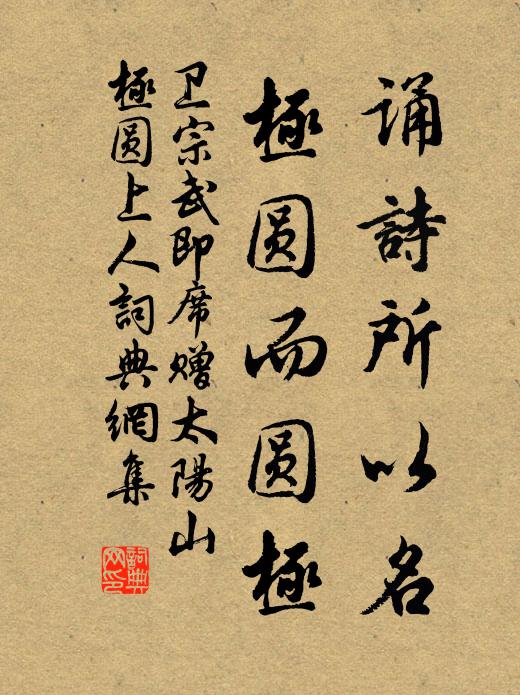 诵詩所以名
極圆而圆極
卫宗武即席赠太陽山
極圆上人詞典網集
詞典
网印